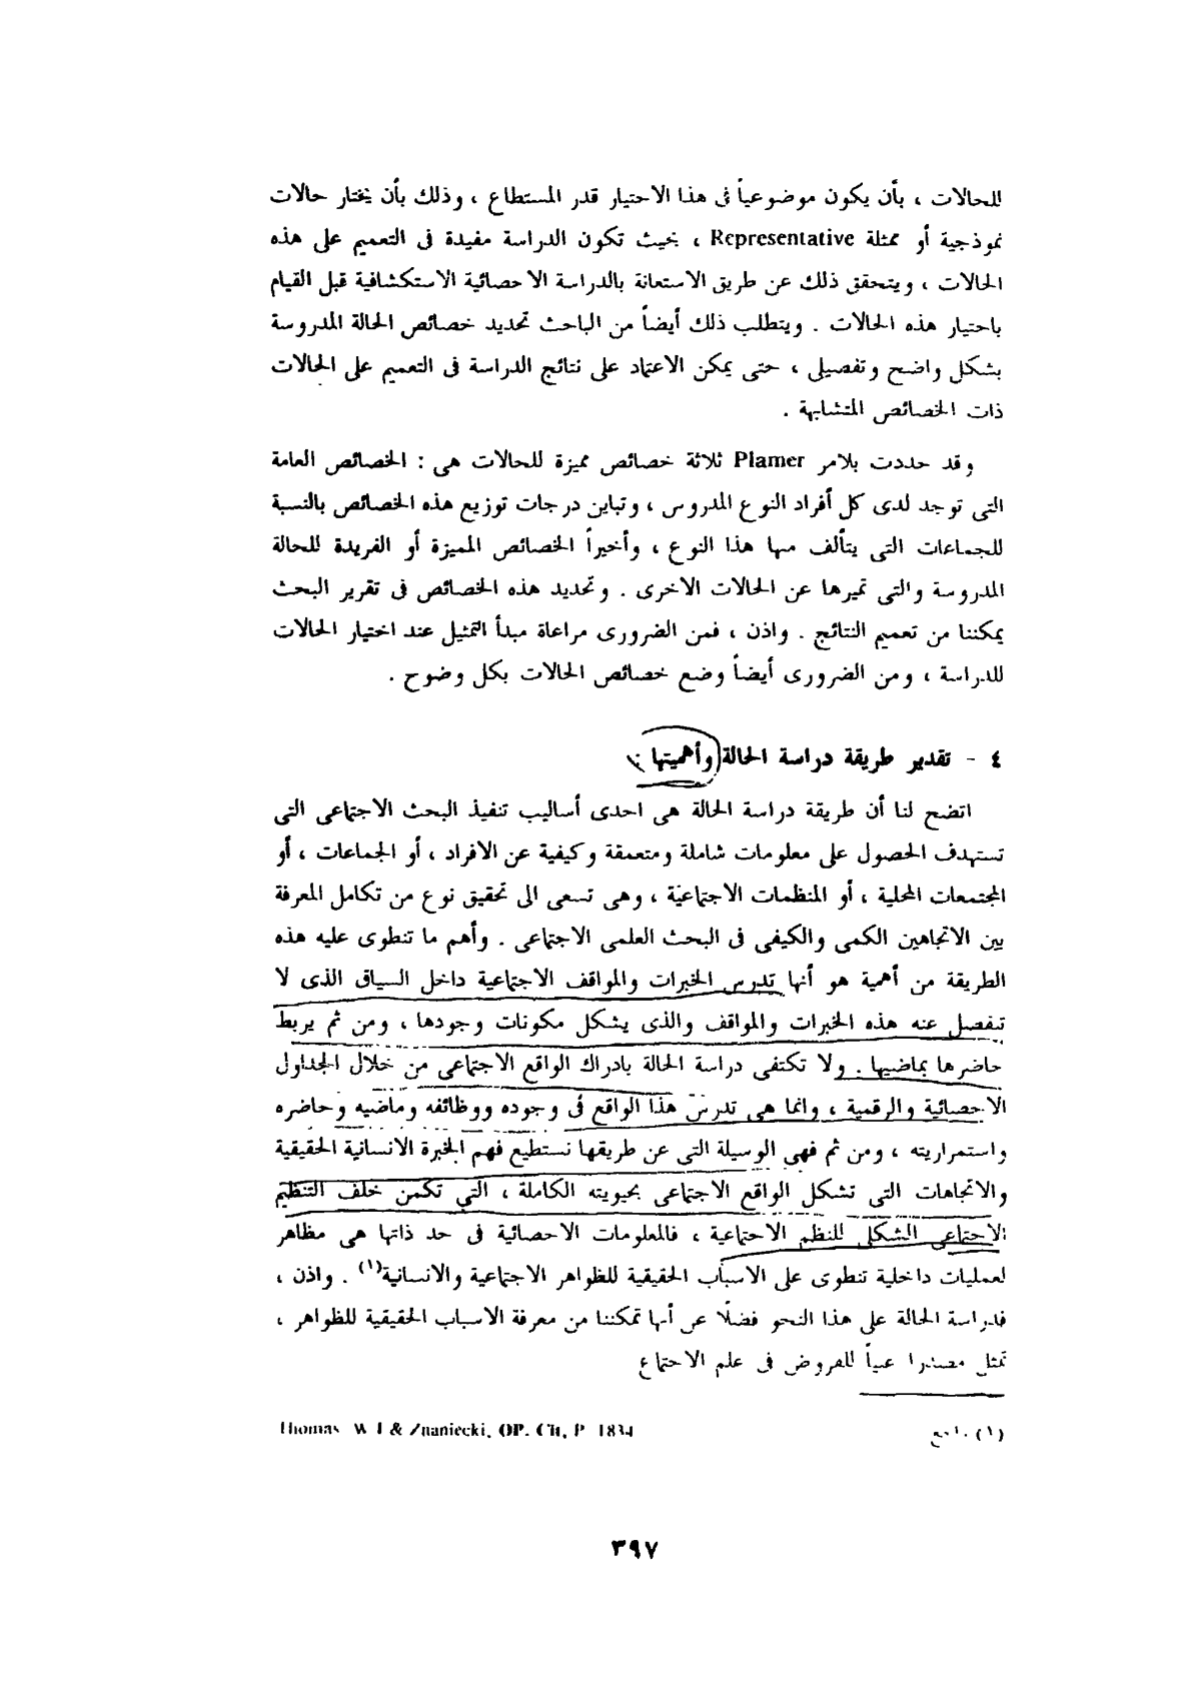 للحالات ، بأن يكون موضوعياً فى هذا الاختيار قدر المستطاع ، وذلك بأن يختار حالات
نموذجية أو ممثلة Representative ، بحيث تكون الدراسة مفيدة فى التعميم على هذه
الحالات ، ويتحقق ذلك عن طريق الاستعانة بالدراسة الاحصائية الاستكشافية قبل القيام
باختيار هذه الحالات . ويتطلب ذلك أيضاً من الباحث تحديد خصائص الحالة المدروسة
بشكل واضح وتفصيلى ، حتى يمكن الاعتماد على نتائج الدراسة فى التعميم على الحالات
ذات الخصائص المتشابهة .
وقد حددت بلامر Plamer ثلاثة خصائص مميزة للحالات هى : الخصائص العامة
التى توجد لدى كل أفراد النوع المدروس ، وتباين درجات توزيع هذه الخصائص بالنسبة
للجماعات التى يتألف منها هذا النوع ، وأخيراً الخصائص المميزة أو الفريدة للحالة
المدروسة والتى تميزها عن الحالات الاخرى . وتحديد هذه الخصائص فى تقرير البحث
يمكننا من تعميم النتائج . واذن ، فمن الضرورى مراعاة مبدأ التمثيل عند اختيار الحالات
للدراسة ، ومن الضرورى أيضاً وضع خصائص الحالات بكل وضوح .
٤ - تقدير طريقة دراسة الحالة وأهميتها :
اتضح لنا أن طريقة دراسة الحالة هى احدى أساليب تنفيذ البحث الاجتماعى التى
تستهدف الحصول على معلومات شاملة ومتعمقة وكيفية عن الافراد ، أو الجماعات ، أو
المجتمعات المحلية ، أو المنظمات الاجتماعية ، وهى تسعى الى تحقيق نوع من تكامل المعرفة
بين الاتجاهين الكمى والكيفى فى البحث العلمى الاجتماعى . وأهم ما تنطوى عليه هذه
الطريقة من أهمية هو أنها تدرس الخبرات والمواقف الاجتماعية داخل السياق الذى لا
تنفصل عنه هذه الخبرات والمواقف والذى يشكل مكونات وجودها ، ومن ثم يربط
حاضرها بماضيها . ولا تكتفى دراسة الحالة بادراك الواقع الاجتماعى من خلال الجداول
الاحصائية والرقمية ، وانما هى تدرس هذا الواقع فى وجوده ووظائفه وماضيه وحاضره
واستمراريته ، ومن ثم فهى الوسيلة التى عن طريقها نستطيع فهم الخبرة الانسانية الحقيقية
والاتجاهات التى تشكل الواقع الاجتماعى بحيويته الكاملة ، التى تكمن خلف التنظيم
الاجتماعى الشكلى للنظم الاجتماعية ، فالمعلومات الاحصائية فى حد ذاتها هى مظاهر
لعمليات داخلية تنطوى على الاسباب الحقيقية للظواهر الاجتماعية والانسانية(١) . واذن ،
فدراسة الحالة على هذا النحو فضلًا عن أنها تمكننا من معرفة الاسباب الحقيقية للظواهر ،
تمثل مصدرا غنياً للفروض فى علم الاجتماع
(١) راجع Thomas W I & Znaniecki, OP. Cit, P 1834
٣٩٧